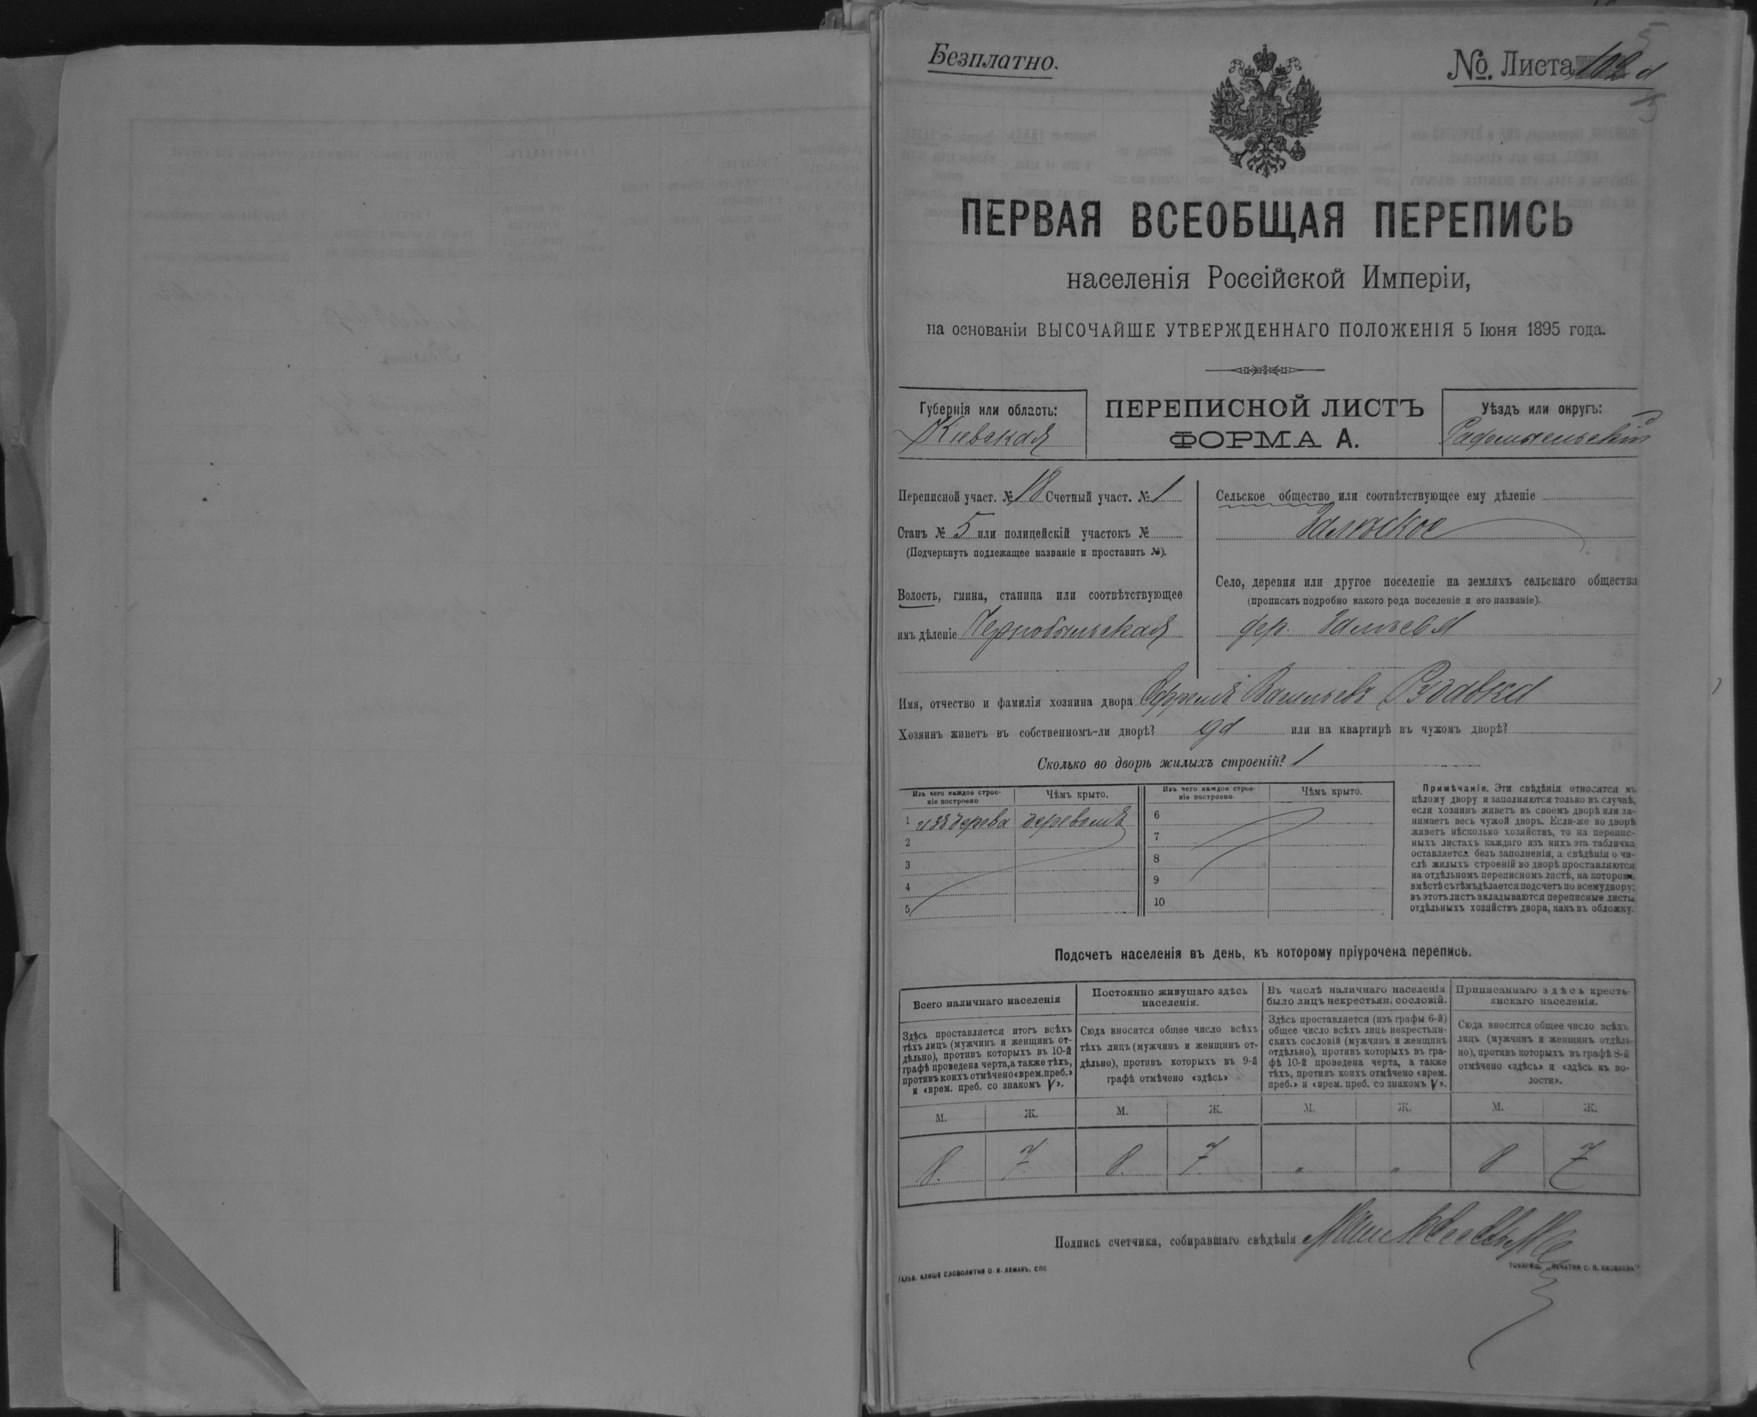 Безплатно.
№. Листа
ПЕРВАЯ ВСЕОБЩАЯ ПЕРЕПИСЬ
населенія Россійской Имперіи,
на основаніи ВЫСОЧАЙШЕ УТВЕРЖДЕННАГО ПОЛОЖЕНІЯ 5 Іюня 1895 года.
Губернія или область:
Кіевская
ПЕРЕПИСНОЙ ЛИСТЪ
ФОРМА А.
Уѣздъ или округъ:
Радомысльскій
Переписной участ. № 18 Счетный участ. № 1
Станъ № 5 или полицейскій участокъ №
(Подчеркнуть подлежащее названіе и проставить №).
Волость, гмина, станица или соотвѣтствующее
имъ дѣленіе Чернобыльская
Сельское общество или соотвѣтствующее ему дѣленіе
Залѣское
Село, деревня или другое поселеніе на земляхъ сельскаго общества
(прописать подробно какого рода поселеніе и его названіе).
дер. Залѣсья
Имя, отчество и фамилія хозяина двора Васильевъ
Хозяинъ живетъ въ собственномъ-ли дворѣ? да или на квартирѣ въ чужомъ дворѣ?
Сколько во дворѣ жилыхъ строеній? 1
Изъ чего каждое строеніе построено
Чѣмъ крыто.
1 изъ дерева деревомъ
2
3
4
5
Изъ чего каждое строеніе построено
Чѣмъ крыто.
6
7
8
9
10
Примѣчаніе. Эти свѣдѣнія относятся къ
цѣлому двору и заполняются только въ случаѣ,
если хозяинъ живетъ въ своемъ дворѣ или за-
нимаетъ весь чужой дворъ. Если-же во дворѣ
живетъ нѣсколько хозяйствъ, то на перепис-
ныхъ листахъ каждаго изъ нихъ эта табличка
оставляется безъ заполненія, а свѣдѣнія о чи-
слѣ жилыхъ строеній во дворѣ проставляются
на отдѣльномъ переписномъ листѣ, на которомъ
вмѣстѣ съ тѣмъ дѣлается подсчетъ по всему двору;
въ этотъ листъ вкладываются переписные листы
отдѣльныхъ хозяйствъ двора, какъ въ обложку.
Подсчетъ населенія въ день, къ которому пріурочена перепись.
Всего наличнаго населенія
Здѣсь проставляется итогъ всѣхъ
тѣхъ лицъ (мужчинъ и женщинъ от-
дѣльно), противъ которыхъ въ 10-й
графѣ проведена черта, а также тѣхъ,
противъ коихъ отмѣчено «врем. преб.»
и «врем. преб. со знакомъ V».
М. Ж.
8. 7
Постоянно живущаго здѣсь
населенія.
Сюда вносится общее число всѣхъ
тѣхъ лицъ (мужчинъ и женщинъ от-
дѣльно), противъ которыхъ въ 9-й
графѣ отмѣчено «здѣсь»
М. Ж.
8. 7
Въ числѣ наличнаго населенія
было лицъ некрестьян. сословій.
Здѣсь проставляется (изъ графы 6-й)
общее число всѣхъ лицъ некрестьян-
скихъ сословій (мужчинъ и женщинъ
отдѣльно), противъ которыхъ въ гра-
фѣ 10-й проведена черта, а также
тѣхъ, противъ коихъ отмѣчено «врем.
преб.» и «врем. преб. со знакомъ V».
М. Ж.
„ „
Приписаннаго здѣсь кресть-
янскаго населенія.
Сюда вносится общее число всѣхъ
лицъ (мужчинъ и женщинъ отдѣль-
но), противъ которыхъ въ графѣ 8-й
отмѣчено «здѣсь» и «здѣсь къ во-
лости».
М. Ж.
8 7
Подпись счетчика, собиравшаго свѣдѣнія
ГАЛЬВ. КЛИШЕ СЛОВОЛИТНИ О. И. ЛЕМАНЪ, СПБ.
ТОВАРИЩ. „ПЕЧАТНЯ С. П. ЯКОВЛЕВА“